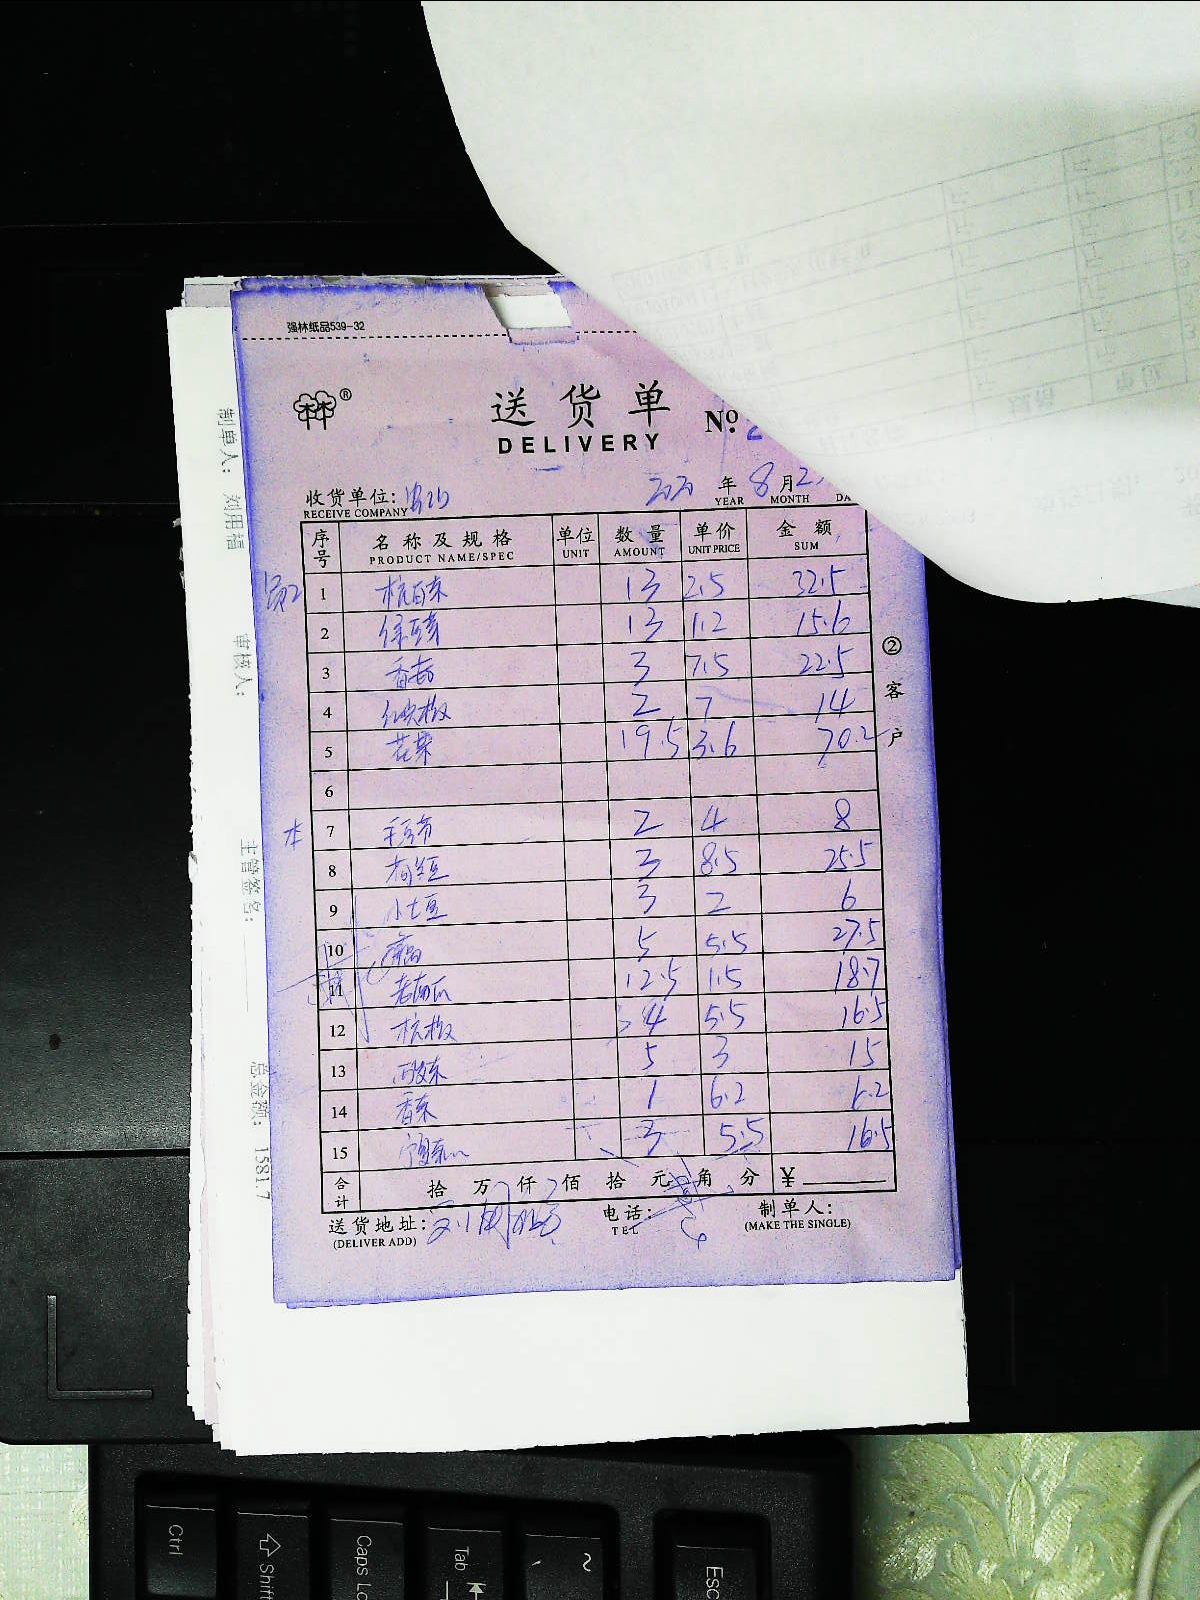 强林纸品539-32
®
送货单
DELIVERY
Nº 2
收货单位:
RECEIVE COMPANY
年 8 月 2
YEAR MONTH DA
序号 名称及规格 单位 数量 单价 金额
PRODUCT NAME/SPEC UNIT AMOUNT UNIT PRICE SUM
1 杭白菜 13 2.5 32.5
2 绿豆芽 13 1.2 15.6
3 香菇 3 7.5 22.5
4 红尖椒 2 7 14
5 花菜 19.5 3.6 70.2
6
本 7 2 4 8
8 3 8.5 25.5
9 小土豆 3 2 6
10 5 5.5 27.5
11 老南瓜 12.5 1.5 18.7
12 杭椒 4 5.5 16.5
13 5 3 15
14 香菜 1 6.2 6.2
15 3 5.5 16.5
合计 拾 万 仟 佰 拾 元 角 分 ¥
送货地址: 刘用福 电话: 制单人:
(DELIVER ADD) TEL (MAKE THE SINGLE)
②客户
制单人: 刘用福
审核人:
主管签名:
总金额: 1581.7
Ctrl
Shift
Caps Lo
Tab
~
Esc